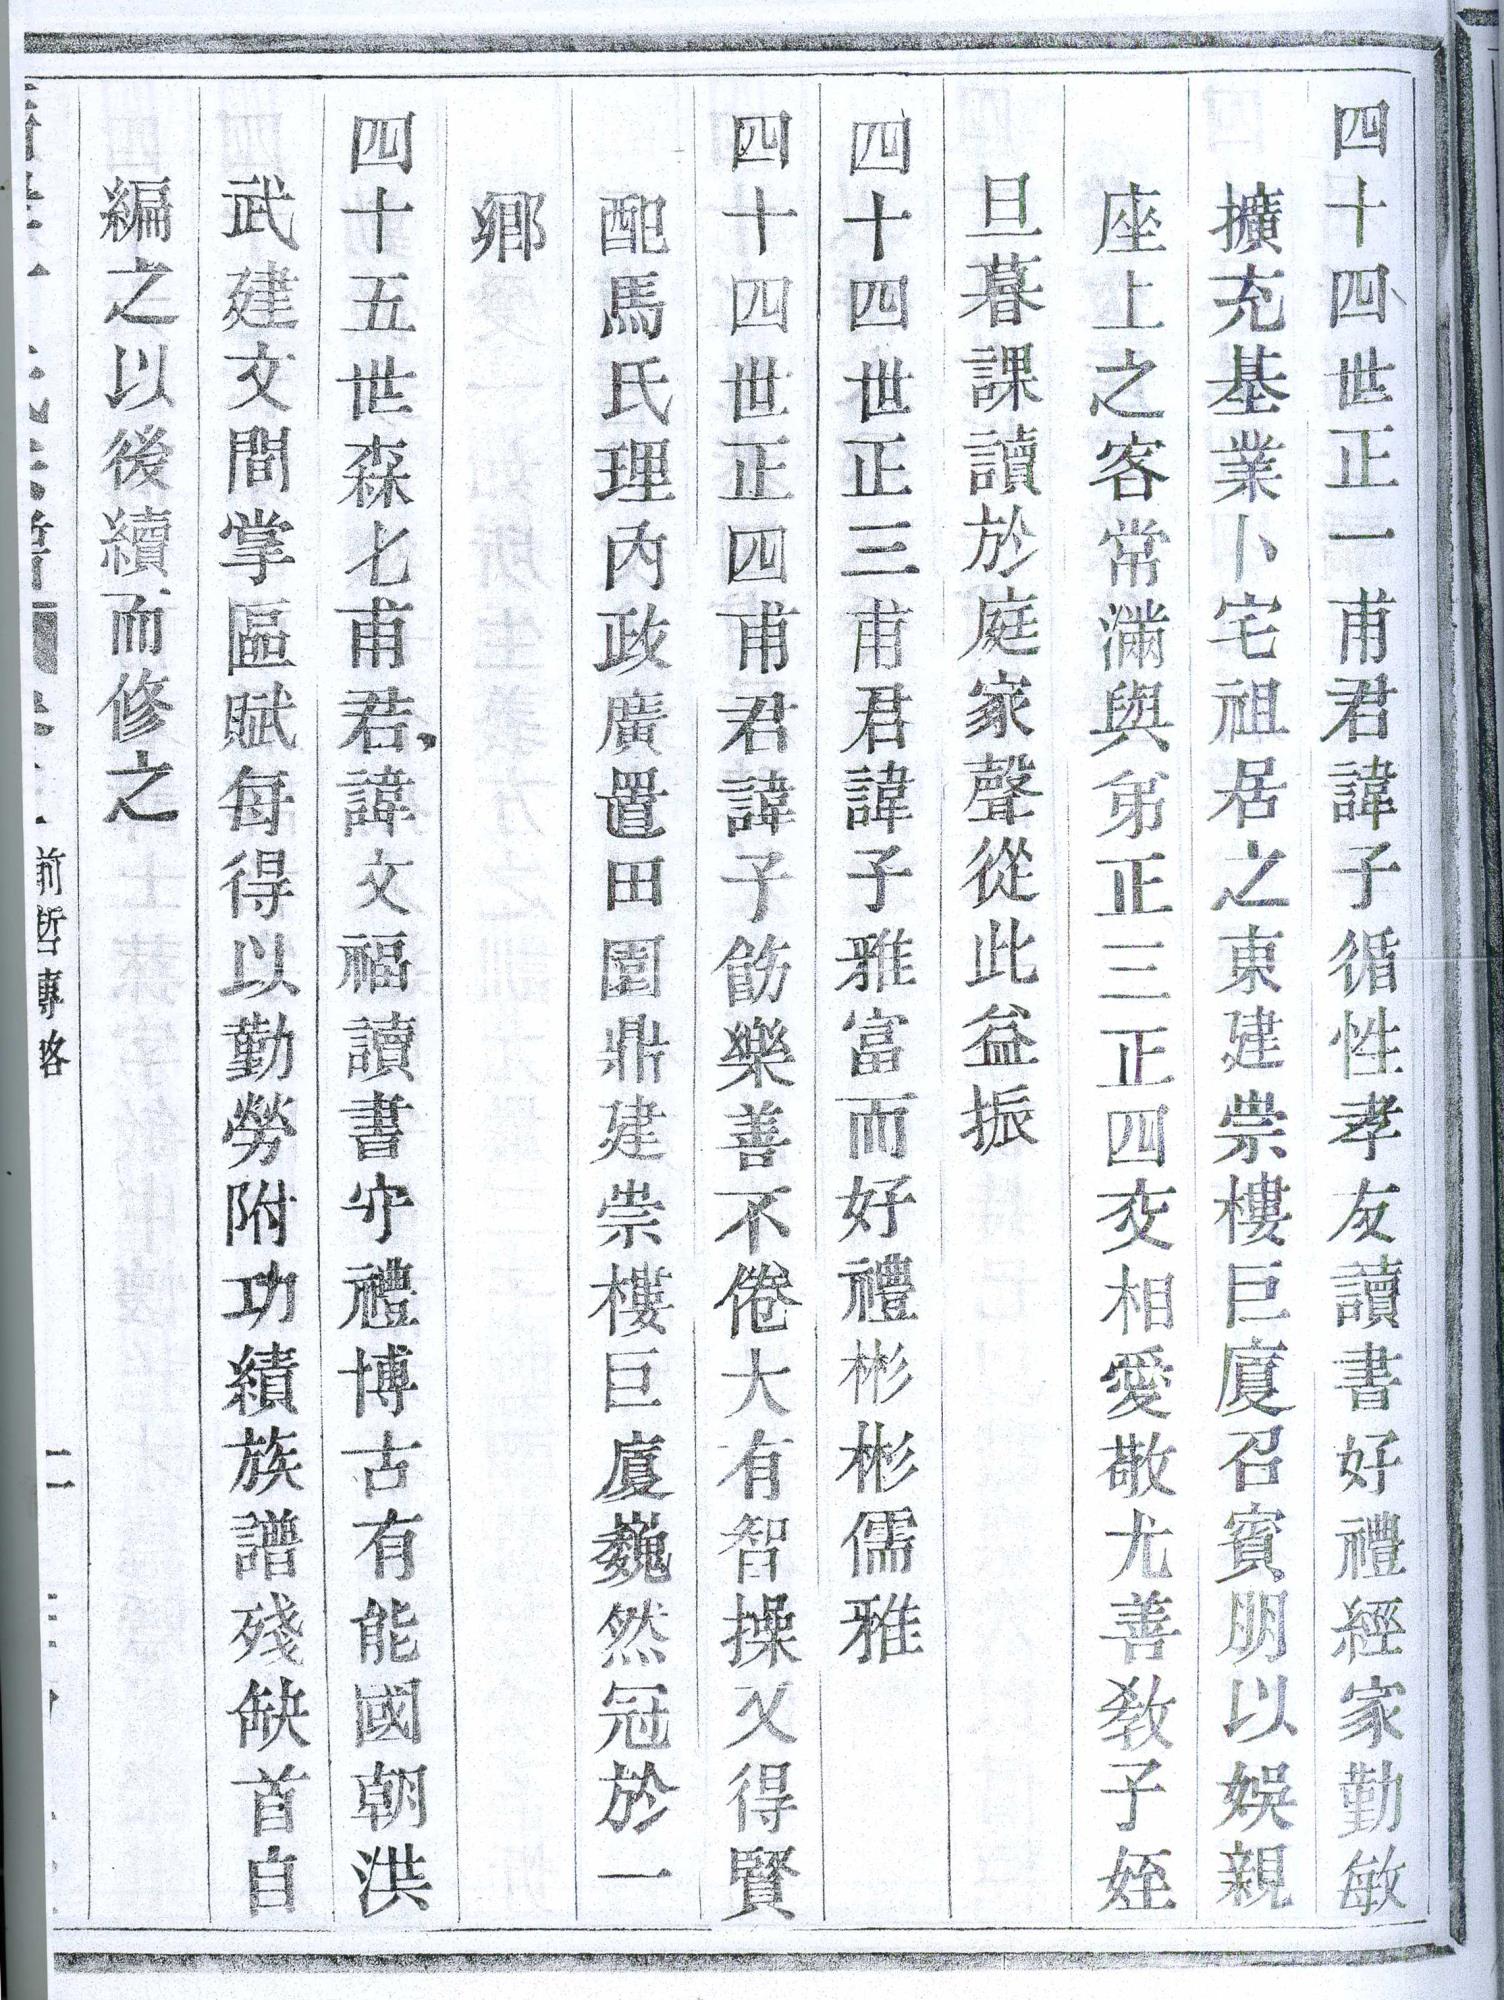 四十四世正一甫君諱子循性孝友讀書好禮經家勤敏
擴充基業卜宅祖居之東建崇樓巨廈召賓朋以娛親
座上之客常滿與弟正三正四交相愛敬尤善敎子姪
旦暮課讀於庭家聲從此益振
四十四世正三甫君諱子雅富而好禮彬彬儒雅
四十四世正四甫君諱子飭樂善不倦大有智操又得賢
配馬氏理內政廣置田園鼎建崇樓巨廈巍然冠於一
鄉
四十五世森七甫君諱文福讀書守禮博古有能國朝洪
武建文間掌區賦每得以勤勞附功績族譜殘缺首自
編之以後續而修之
前哲專略
二